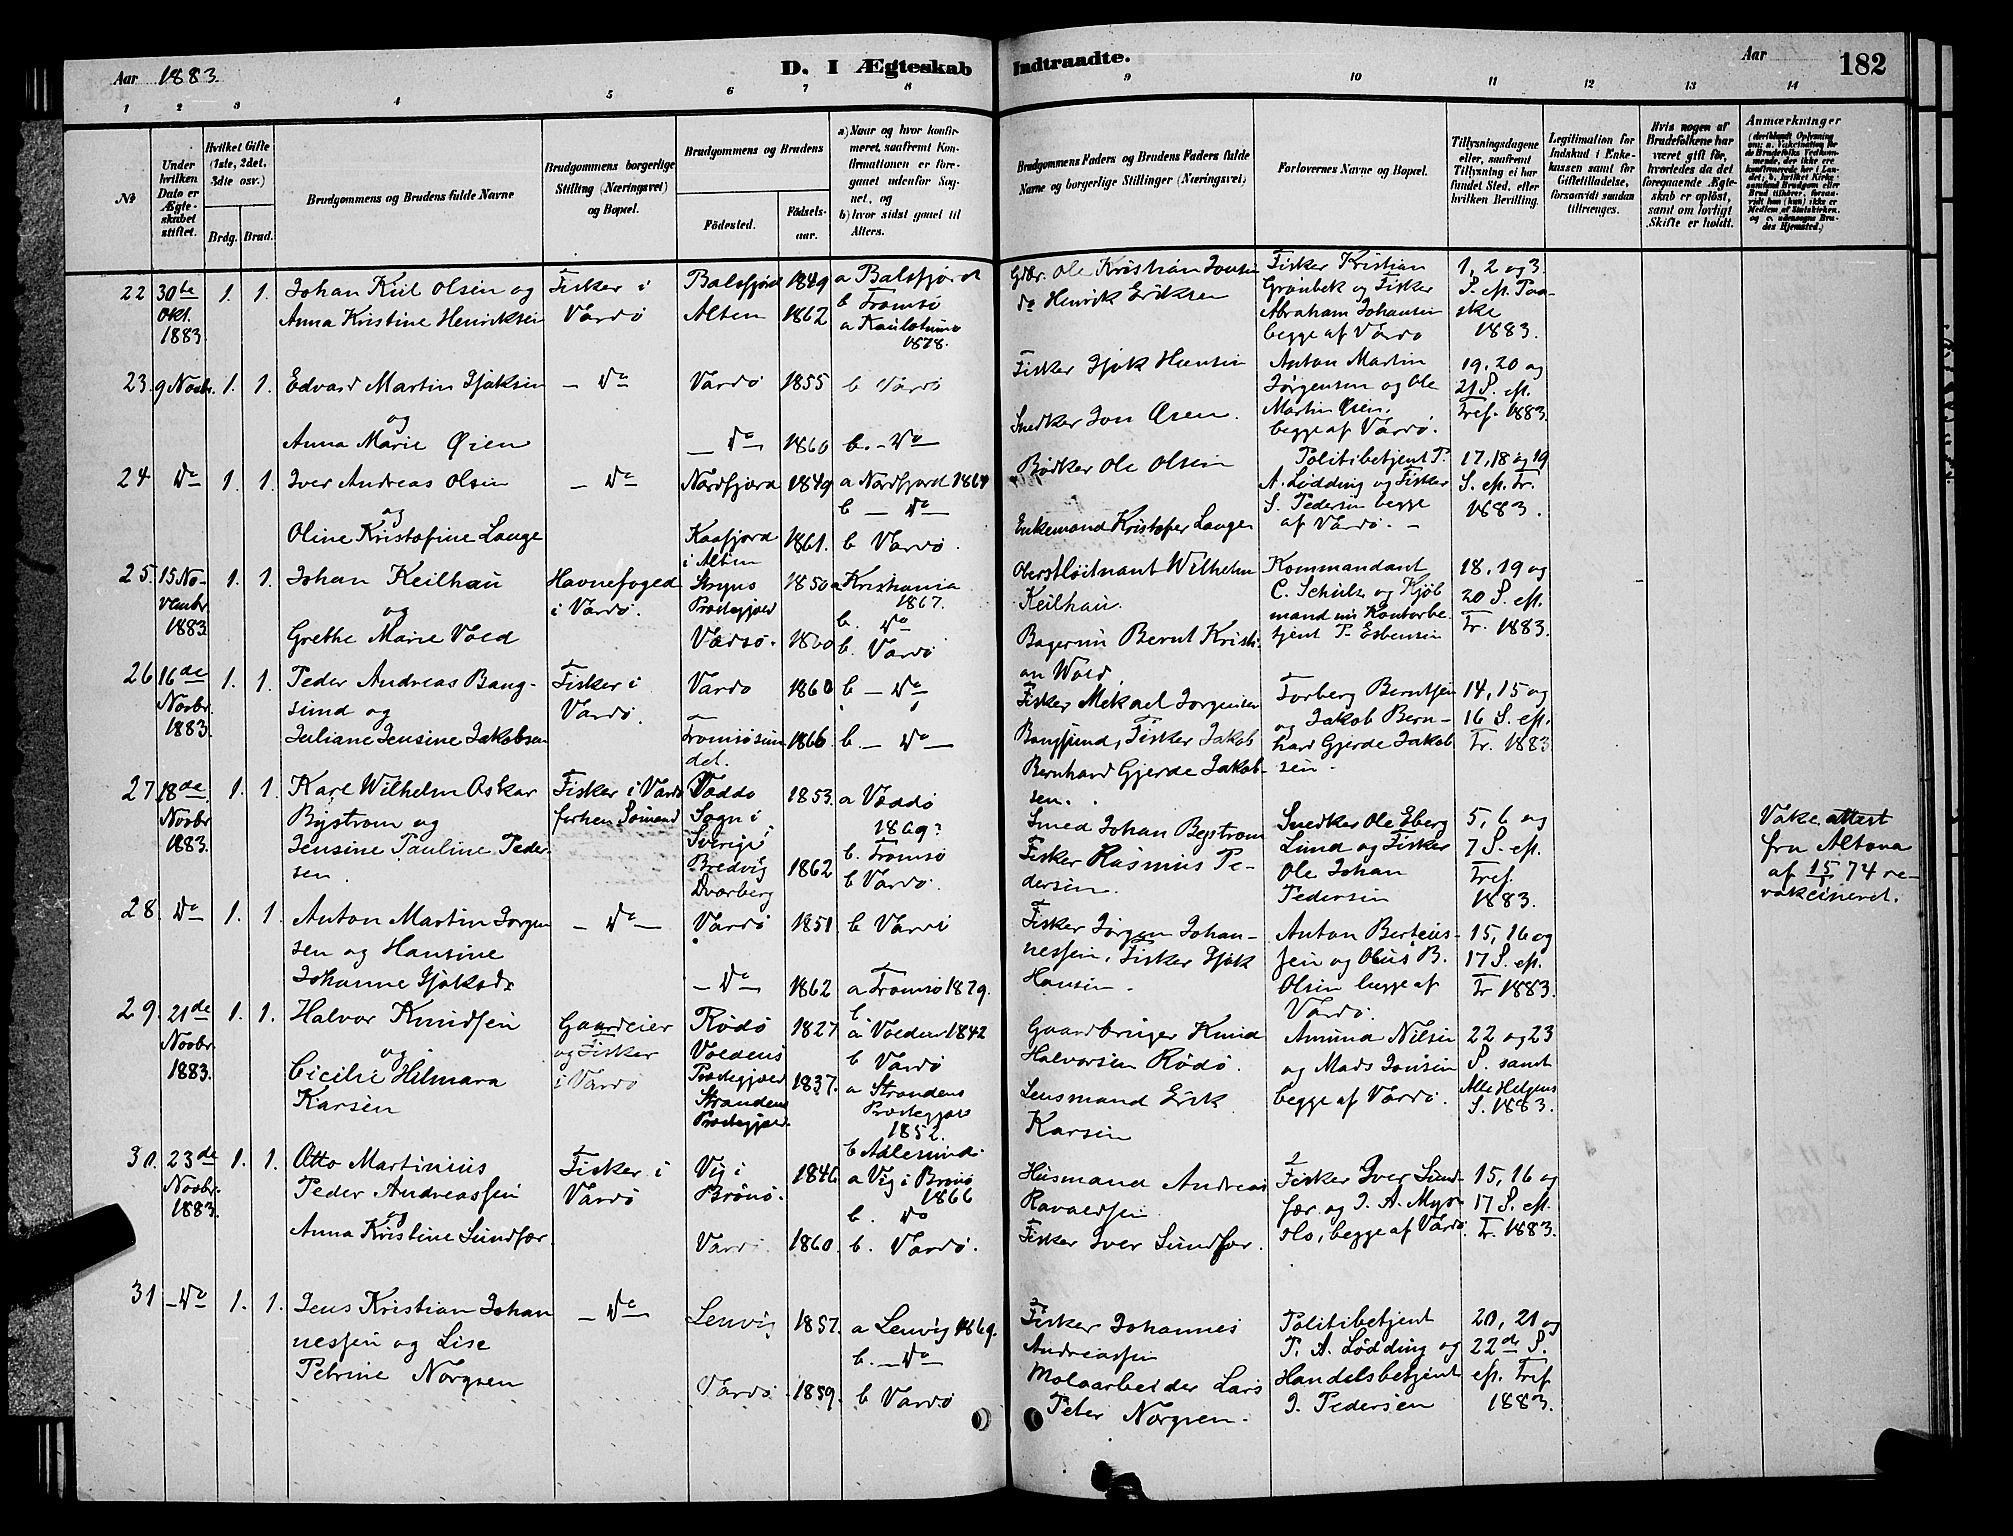 Aar 1883. D. I Ægteskab Indtraadte. Aar 182
1 2 3 4 5 6 7 8 9 10 11 12 13 14
No.
Under hvilken Dato er Ægteskabet stiftet.
Hvilket Gifte (1ste, 2det, 3die osv.)
Brdg. Brud.
Brudgommens og Brudens fulde Navne
Brudgommens borgerlige Stilling (Næringsvei) og Bopæl.
Brudgommens og Brudens
Fødested.
Fødselsaar.
a) Naar og hvor konfirmeret, saafremt Konfirmationen er foregaaet udenfor Sognet, og
b) hvor sidst gaaet til Alters.
Brudgommens Faders og Brudens Faders fulde Navne og borgerlige Stillinger (Næringsvei)
Forlovernes Navne og Bopæl.
Tillysningsdagene eller, saafremt Tillysning ei har fundet Sted, efter hvilken Bevilling.
Legitimation for Indskud i Enkekassen samt for Giftetilladelse, forsaavidt saadan tiltrænges.
Hvis nogen af Brudefolkene har været gift før, hvorledes da det foregaaende Ægteskab er opløst, samt om lovligt Skifte er holdt.
Anmærkninger
22 30te Okt. 1883 1. 1.
Johan Kiil Olsen og
Anna Kristine Henriksen
Fisker i
Vardø
Balsfjord 1849 a Balsfjord
b Tromsø
Alten 1862 a Kautokeino
1878.
Gdbr. Ole Kristian Jonsen
do Henrik Eriksen
Fisker Kristian
Grønbek og Fisker
Abraham Johansen
begge af Vardø
1, 2 og 3.
S. eft. Paa-
ske
1883.
23. 9 Novbr. 1. 1.
Edvard Martin Isaksen
og
Anna Marie Øien
– Do
Vardø 1855 b Vardø
– Do – 1860 b. – Do –
Fisker Isak Hansen
Snedker Jon Øien.
Anton Martin
Jørgensen og Ole
Martin Øien.
begge af Vardø.
19, 20 og
21 S. eft.
Tref. 1883.
24 Do 1. 1.
Iver Andreas Olsen
og
Oline Kristofine Lange
– Do
Nordfjord 1849 a Nordfjord 1864
b – Do –
Kaafjord
i Alten 1861. b Vardø.
Bødker Ole Olsen
Enkemand Kristofer Lange
Politibetjent P.
A. Lødding og Fisker
S. Pedersen begge
af Vardø. –
17, 18 og 19
S. eft. Tr.
1883.
25. 15 No-
vembr
1883 1. 1.
Johan Keilhau
og
Grethe Marie Vold
Havnefoged
i Vardø.
Stryns
Præstegjæld 1850 a Kristiania
1867.
b. Do
Vardø. 1860 b. Vardø
Oberstløitnant Wilhelm
Keilhau.
Bagersvn Bernt Kristi-
an Wold
Kommandant
C. Schulz og Kjøb
mand Kontorbe-
tjent P. Esbensen
18, 19 og
20 S. eft.
Tr. 1883.
26 16de
Novbr.
1883 1. 1.
Peder Andreas Bang-
sund og
Juliane Jensine Jakobsen
Fisker i
Vardø.
Vardø 1860 b – Do –
Tromsøsun
det. 1866 b – Do –
Fisker Mekael Jørgensen
Bangsund, Fisker Jakob
Bernhard Gjerde Jakob-
sen.
Torberg Berntsen
og Jakob Bern-
hard Gjerde Jakob
sen –
14, 15 og
16 S. eft.
Tr. 1883
27 18de
Novbr
1883. 1. 1.
Karl Wilhelm Oskar
Bystrøm og
Jensine Pauline Peder-
sen.
Fisker i Vardø
forhen Sømand
Væddø
Sogn i
Sverige 1853. a Væddø
1869?
b. Tromsø
Bredvig
Dvarberg 1862 b Vardø.
Smed Johan Bystrøm
Fisker Rasmus Pe-
dersen.
Snedker Ole Eberg
Lund og Fisker
Ole Johan
Pedersen
5, 6 og
7 S. eft.
Tref.
1883.
Vakc. attest
fra Altona
af 15/5 74 re-
vakcineret.
28. Do 1. 1.
Anton Martin Jørgen
sen og Hansine
Johanne Isaksdr
– Do –
Vardø 1851 b Vardø
– Do – 1862 a Tromsø 1879.
b
Fisker Jørgen Johan-
nessen, Fisker Isak
Hansen.
Anton Berteus-
sen og Olüs B.
Olsen begge af
Vardø.
15, 16 og
17 S. eft.
Tr 1883.
29. 21de
Novbr.
1883. 1. 1.
Halvor Knudsen
og
Cicilie Hilmara
Karsen
Gaardeier
og Fisker
i Vardø
Rødø
Voldens
Præstegjæld 1827 a Volden 1842
b Vardø
Strandens
Præstegjæld. 1837. a Strandens
Præstegjæld
1852.
b Aalesund.
Gaardbruger Knud
Halvorsen Rødø.
Lensmand Erik
Karsen
Amund Nilsen
og Mads Jonsen
begge af Vardø.
22 og 23
S. samt
Alle Helgens
S. 1883.
30. 23de
Novbr.
1883. 1. 1.
Otto Martinius
Peder Andreassen
og
Anna Kristine Sundfær.
Fisker i
Vardø
Vig i
Brønø. 1846 a Vig i Brønø
1866
b. Do
Vardø. 1860. b. Vardø.
Husmand Andreas
Ravaldsen
Fisker Iver Sundfær.
Fisker Iver Sund-
fær og J. A. Myr-
olo, begge af Vardø.
15, 16 og
17 S. eft.
Tr. 1883.
31 – Do 1. 1.
Jens Kristian Johan
nessen og Lise
Petrine Norgren
– Do –
Lenvig 1857. a Lenvig 1869.
b. – Do –
Vardø. 1859. b Vardø
Fisker Johannes
Andreassen
Moloarbeider Lars
Peter Norgren.
Politibetjent
P. A. Lødding og
Handelsbetjent
J. Pedersen
20, 21 og
22de S.
eft. Tref
1883.